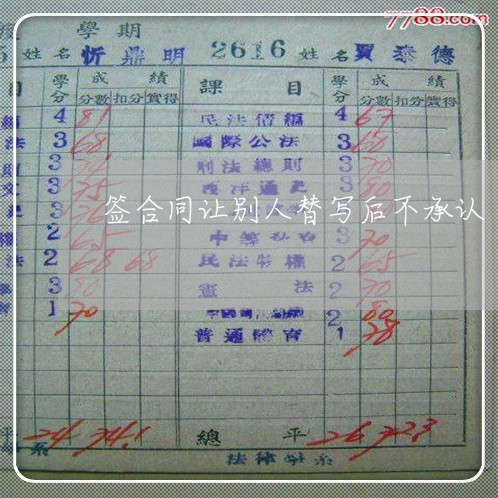 7788.com
學期
姓名 忻鼎明 2616 姓名 賈泰德
目 學分 成績 課目 學分 成績
分數 扣分 實得 分數 扣分 實得
4 81 民法債編 4 67
法 3 68 國際公法 3 60
3 刑法總則 3 70
3 75 西洋通史 3 80
签合同让别人替写后不承认
2 65 3 70
法 2 68 68 民法物權 2 65
3 80 憲法 2 70
1 70 2 80
普通體育 1 78
平 24 74.1 總平 26 72.3
系 法律學系